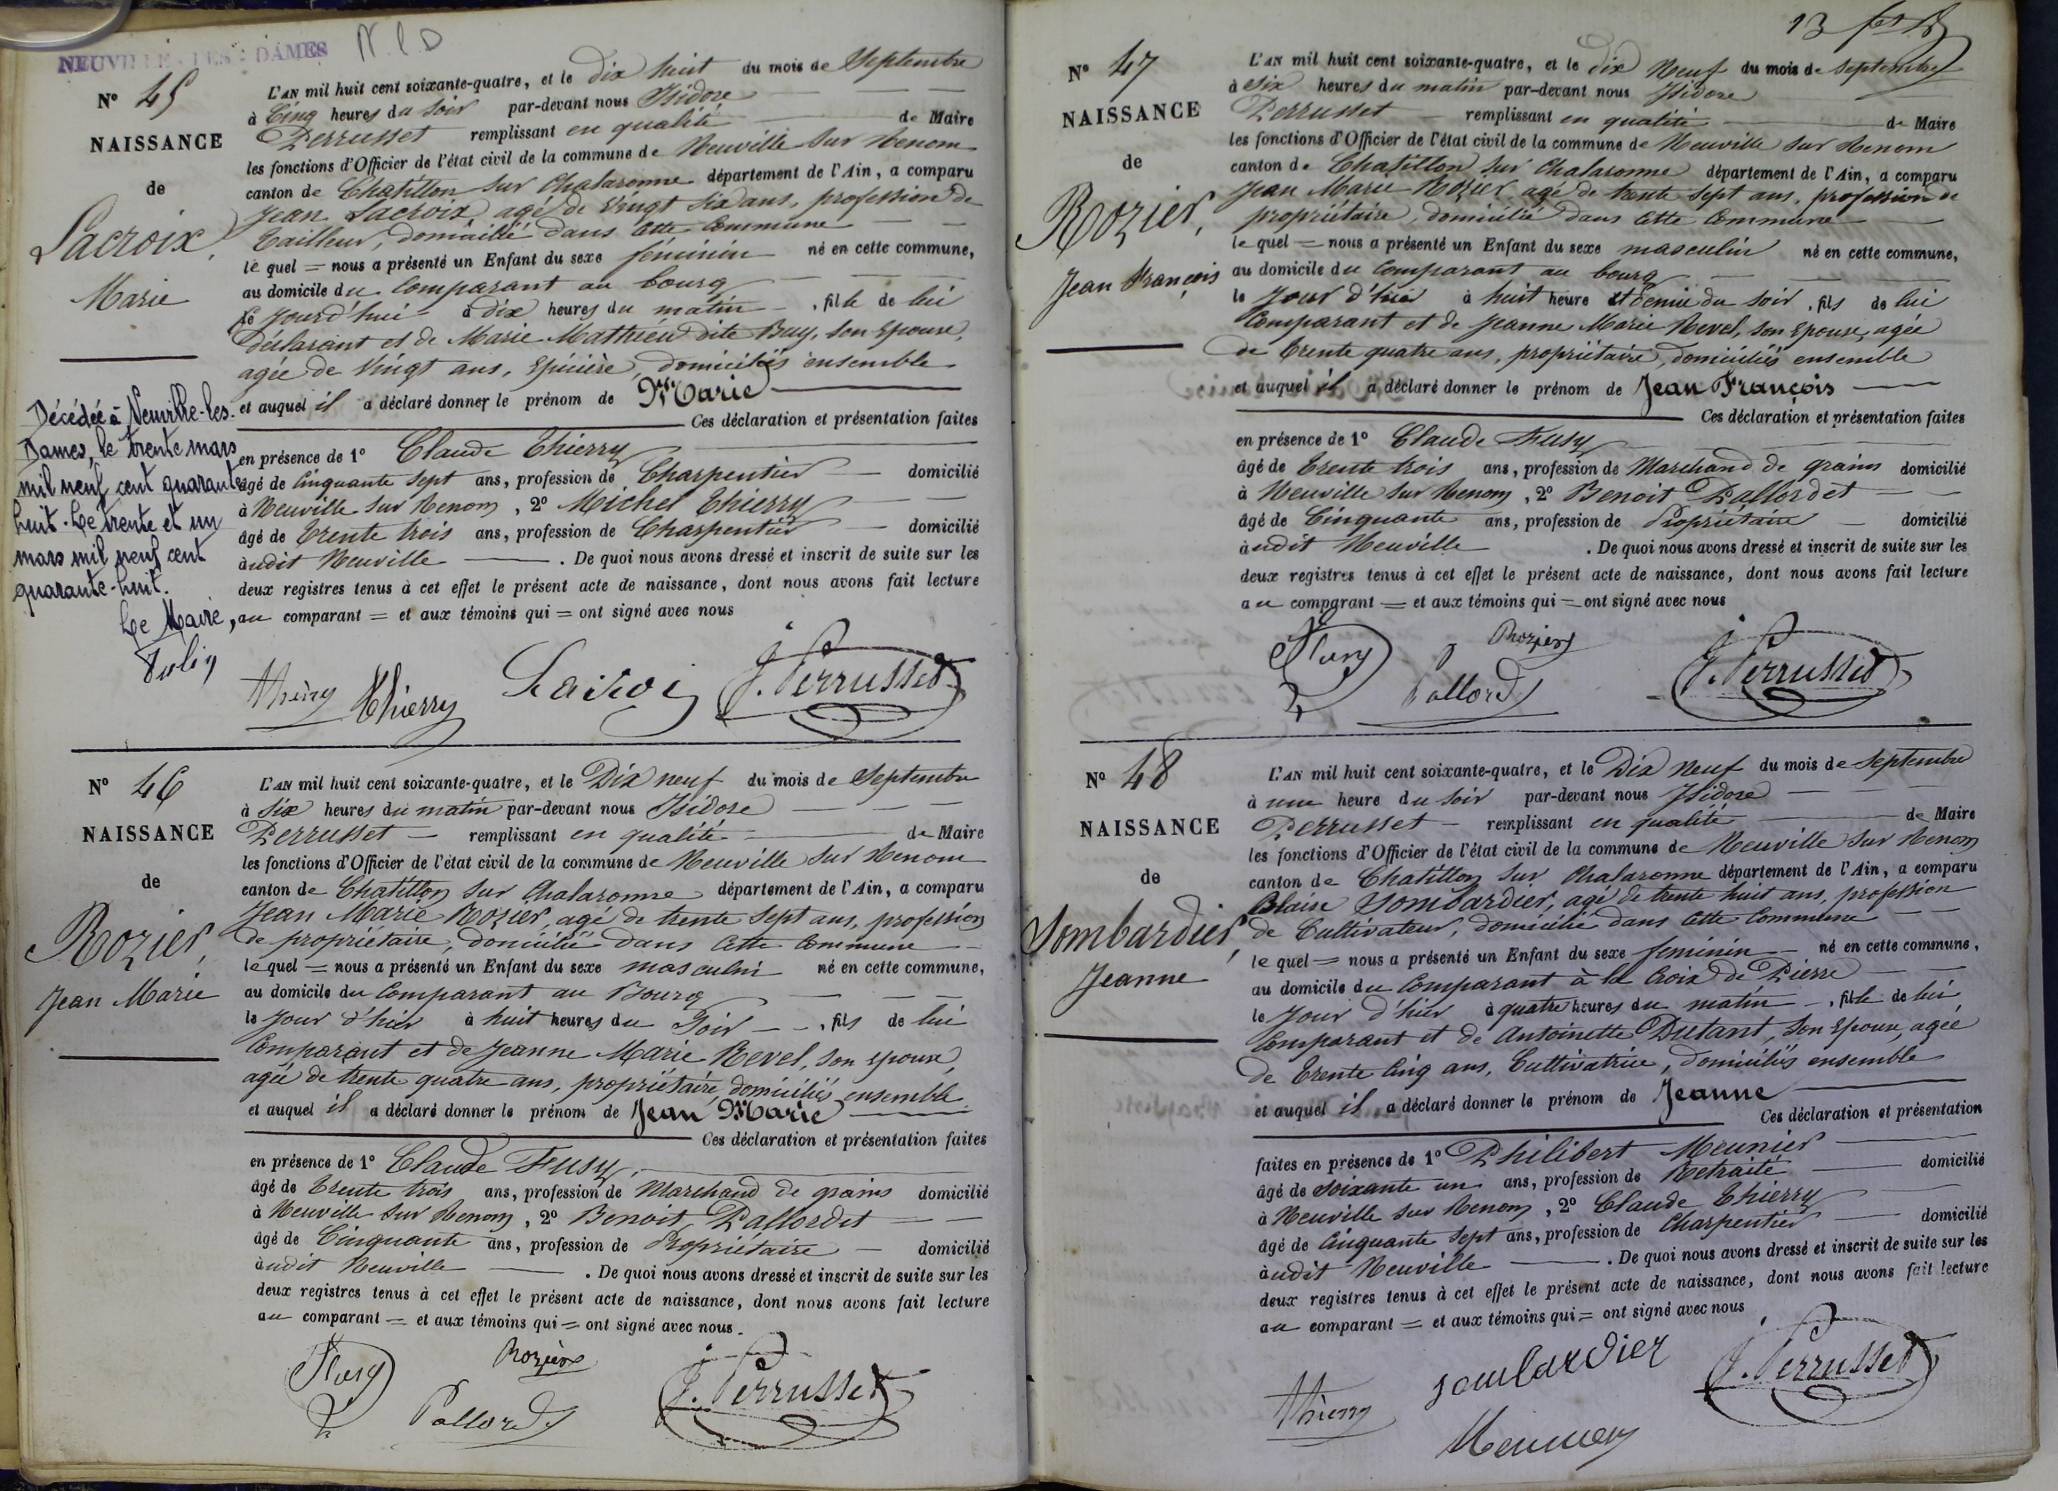 NEUVILLE-LES-DAMES
N.L.D
Nº 45
NAISSANCE
de
Lacroix,
Marie
Décédée à Neuville-les-
Dames, le trente mars
mil neuf cent quarante
huit. Le trente et un
mars mil neuf cent
quarante-huit.
Le Maire,
L'AN mil huit cent soixante-quatre, et le dix huit du mois de Septembre
à Cinq heures du soir par-devant nous Isidore
Perrusset remplissant en qualité de Maire
les fonctions d'Officier de l'état civil de la commune de Neuville sur Renom
canton de Chatillon sur Chalaronne département de l'Ain, a comparu
Jean Lacroix, agé de Vingt six ans, profession de
tailleur, domicilié dans cette commune
le quel = nous a présenté un Enfant du sexe féminin né en cette commune,
au domicile du Comparant au bourg
le Jourd'hui à dix heures du matin, fille de lui
déclarant et de Marie Mathieu dite Buy, son épouse,
agée de Vingt ans, épicière, domiciliés ensemble
et auquel il a déclaré donner le prénom de Marie
Ces déclaration et présentation faites
en présence de 1º Claude Thierry
âgé de Cinquante sept ans, profession de Charpentier domicilié
à Neuville sur Renom, 2º Michel Thierry
âgé de trente trois ans, profession de Charpentier domicilié
àudit Neuville. De quoi nous avons dressé et inscrit de suite sur les
deux registres tenus à cet effet le présent acte de naissance, dont nous avons fait lecture
au comparant = et aux témoins qui = ont signé avec nous
Thierry Thierry Lacroi J. Perrusset
Nº 46
NAISSANCE
de
Rozier,
Jean Marie
L'AN mil huit cent soixante-quatre, et le Dix neuf du mois de Septembre
à six heures du matin par-devant nous Isidore
Perrusset remplissant en qualité de Maire
les fonctions d'Officier de l'état civil de la commune de Neuville sur Renom
canton de Chatillon sur Chalaronne département de l'Ain, a comparu
Jean Marie Rozier, agé de trente sept ans, profession
de propriétaire, domicilié dans cette commune
le quel = nous a présenté un Enfant du sexe masculin né en cette commune,
au domicile du Comparant au Bourg
le Jour d'hier à huit heures du Soir, fils de lui
Comparant et de Jeanne Marie Revel, son épouse,
agée de trente quatre ans, propriétaire, domiciliés ensemble
et auquel il a déclaré donner le prénom de Jean Marie
Ces déclaration et présentation faites
en présence de 1º Claude Fusy,
âgé de trente trois ans, profession de Marchand de grains domicilié
à Neuville sur Renom, 2º Benoit Pallordet
âgé de Cinquante ans, profession de Propriétaire domicilié
àudit Neuville. De quoi nous avons dressé et inscrit de suite sur les
deux registres tenus à cet effet le présent acte de naissance, dont nous avons fait lecture
au comparant = et aux témoins qui = ont signé avec nous.
Fusy Rozier Pallord J. Perrusset
Nº 47
NAISSANCE
de
Rozier,
Jean François
L'AN mil huit cent soixante-quatre, et le dix Neuf du mois de Septembre
à six heures du matin par-devant nous Isidore
Perrusset remplissant en qualité de Maire
les fonctions d'Officier de l'état civil de la commune de Neuville sur Renom
canton de Chatillon sur Chalaronne département de l'Ain, a comparu
Jean Marie Rozier, agé de trente sept ans, profession de
propriétaire, domicilié dans cette Commune
le quel = nous a présenté un Enfant du sexe masculin né en cette commune,
au domicile du Comparant au bourg
le Jour d'hier à huit heure et demie du soir, fils de lui
Comparant et de Jeanne Marie Revel, son épouse, agée
de trente quatre ans, propriétaire, domiciliés ensemble
et auquel il a déclaré donner le prénom de Jean François
Ces déclaration et présentation faites
en présence de 1º Claude Fusy
âgé de trente trois ans, profession de Marchand de grains domicilié
à Neuville sur Renom, 2º Benoit Pallordet
âgé de Cinquante ans, profession de Propriétaire domicilié
àudit Neuville. De quoi nous avons dressé et inscrit de suite sur les
deux registres tenus à cet effet le présent acte de naissance, dont nous avons fait lecture
au comparant = et aux témoins qui = ont signé avec nous
Fusy Rozier Pallord J. Perrusset
Nº 48
NAISSANCE
de
Sombardier,
Jeanne
L'AN mil huit cent soixante-quatre, et le Dix Neuf du mois de Septembre
à une heure du soir par-devant nous Isidore
Perrusset remplissant en qualité de Maire
les fonctions d'Officier de l'état civil de la commune de Neuville sur Renom
canton de Chatillon sur Chalaronne département de l'Ain, a comparu
Blaise Sombardier, agé de trente huit ans, profession
de Cultivateur, domicilié dans cette Commune
le quel = nous a présenté un Enfant du sexe feminin né en cette commune,
au domicile du Comparant à la Croix de Pierre
le Jour d'hier à quatre heures du matin, fille de lui
Comparant et de Antoinette Dutant, son épouse, agée
de trente Cinq ans, Cultivatrice, domiciliés ensemble
et auquel il a déclaré donner le prénom de Jeanne
Ces déclaration et présentation
faites en présence de 1º Philibert Meunier
âgé de soixante un ans, profession de Retraité domicilié
à Neuville sur Renom, 2º Claude Thierry
âgé de Cinquante sept ans, profession de Charpentier domicilié
àudit Neuville. De quoi nous avons dressé et inscrit de suite sur les
deux registres tenus à cet effet le présent acte de naissance, dont nous avons fait lecture
au comparant = et aux témoins qui = ont signé avec nous
Thierry Sombardier J. Perrusset
Meunier